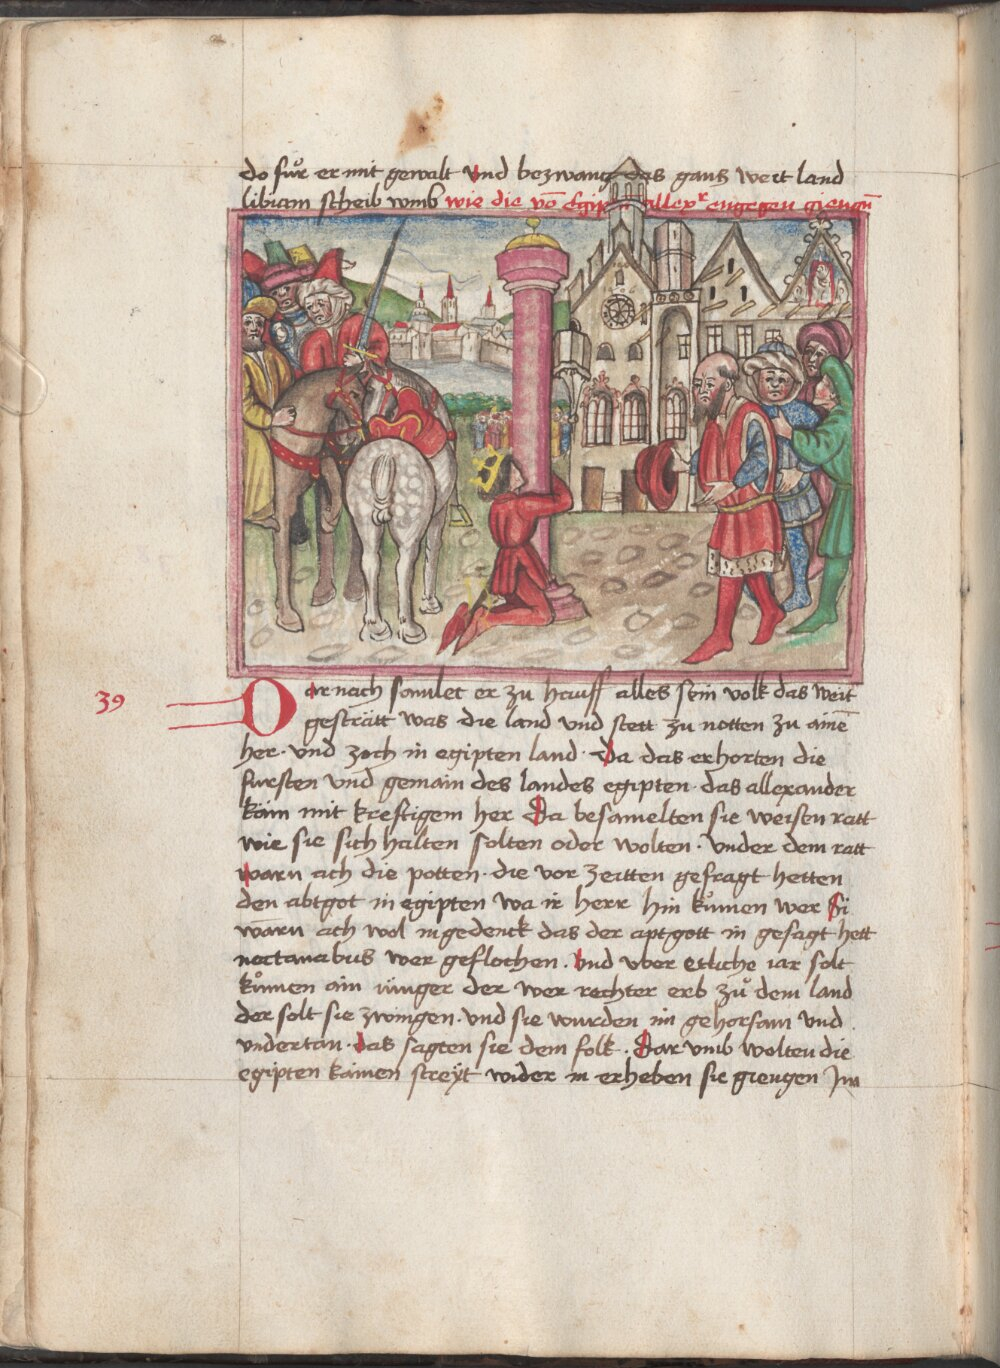 do fuͦr er mit gewalt Vnd bezwang das gans weit land
libiam scheib vmb wie die vō Egipten allexʳ engegen giengn̄
39
Dar nach samlet er zu hauff alles sein volk das weit
gesträtt was die land vnd stett zu notten zu aine͞
her · vnd zoch in egipten land · Da das erhorten die
fursten vnd gemain des landes egipten · das allexander
käm mit kreftigem her Da besamelten sie weisen ratt
wie sie sich halten solten oder wolten · vnder dem ratt
warn ach die potten · die vor zeitten gefragt hetten
den abtgot in egipten wa ir herr hin kumen wer Si
warn ach wol ingedenck das der aptgott in gesagt hett
nectanabus wer geflochen · Vnd vber etliche iar solt
kumen ain iunger der wer rechter erb zuͦ dem land
der solt sie zwingen · vnd sie wurden im gehorsam vnd
vndertan · das sagten sie dem folk · Dar vmb wolten die
egipten kainen streÿt wider in erheben sie giengen Im